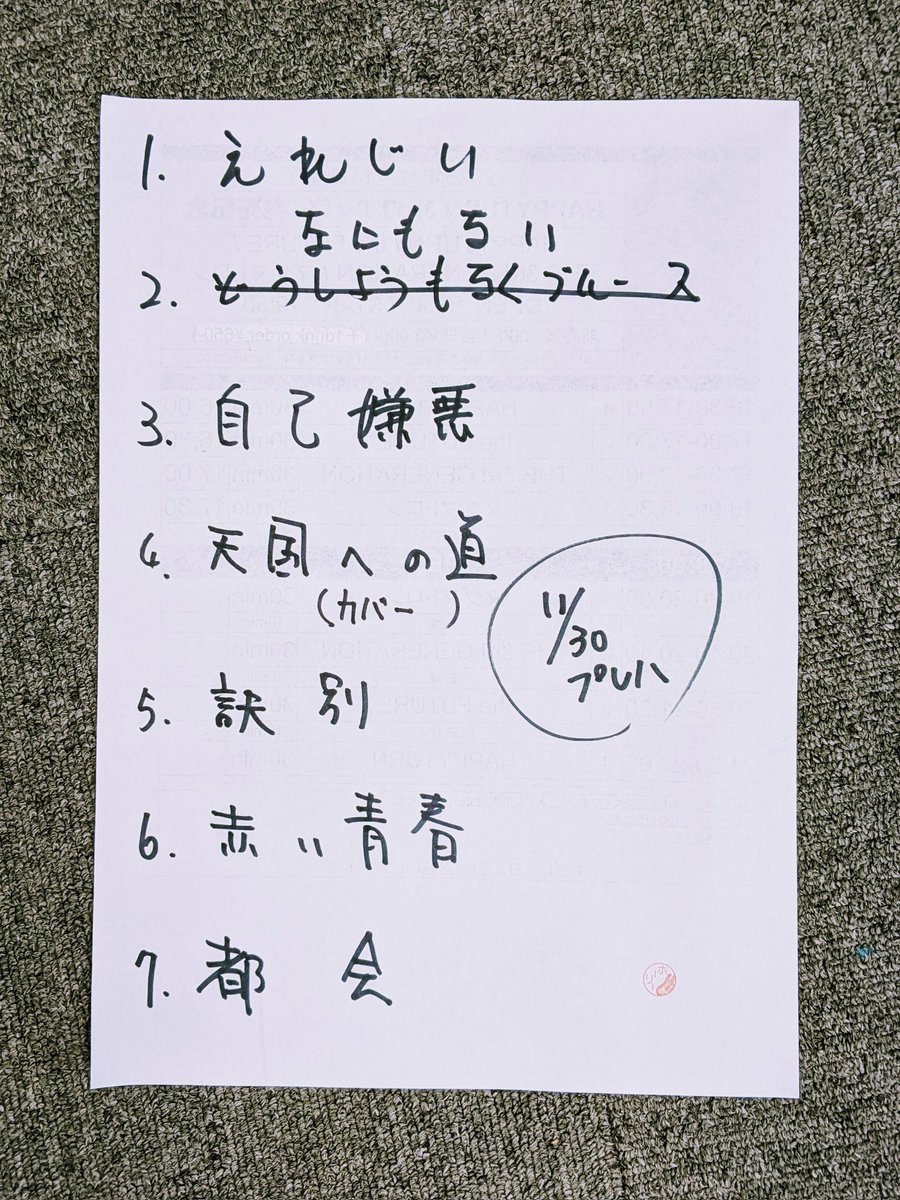 1. えれじい
なにもない
2. どうしようもなくブルース
3. 自己嫌悪
4. 天国への道
(カバー)
11/30
プレハ
5. 訣別
6. 赤い青春
7. 都会